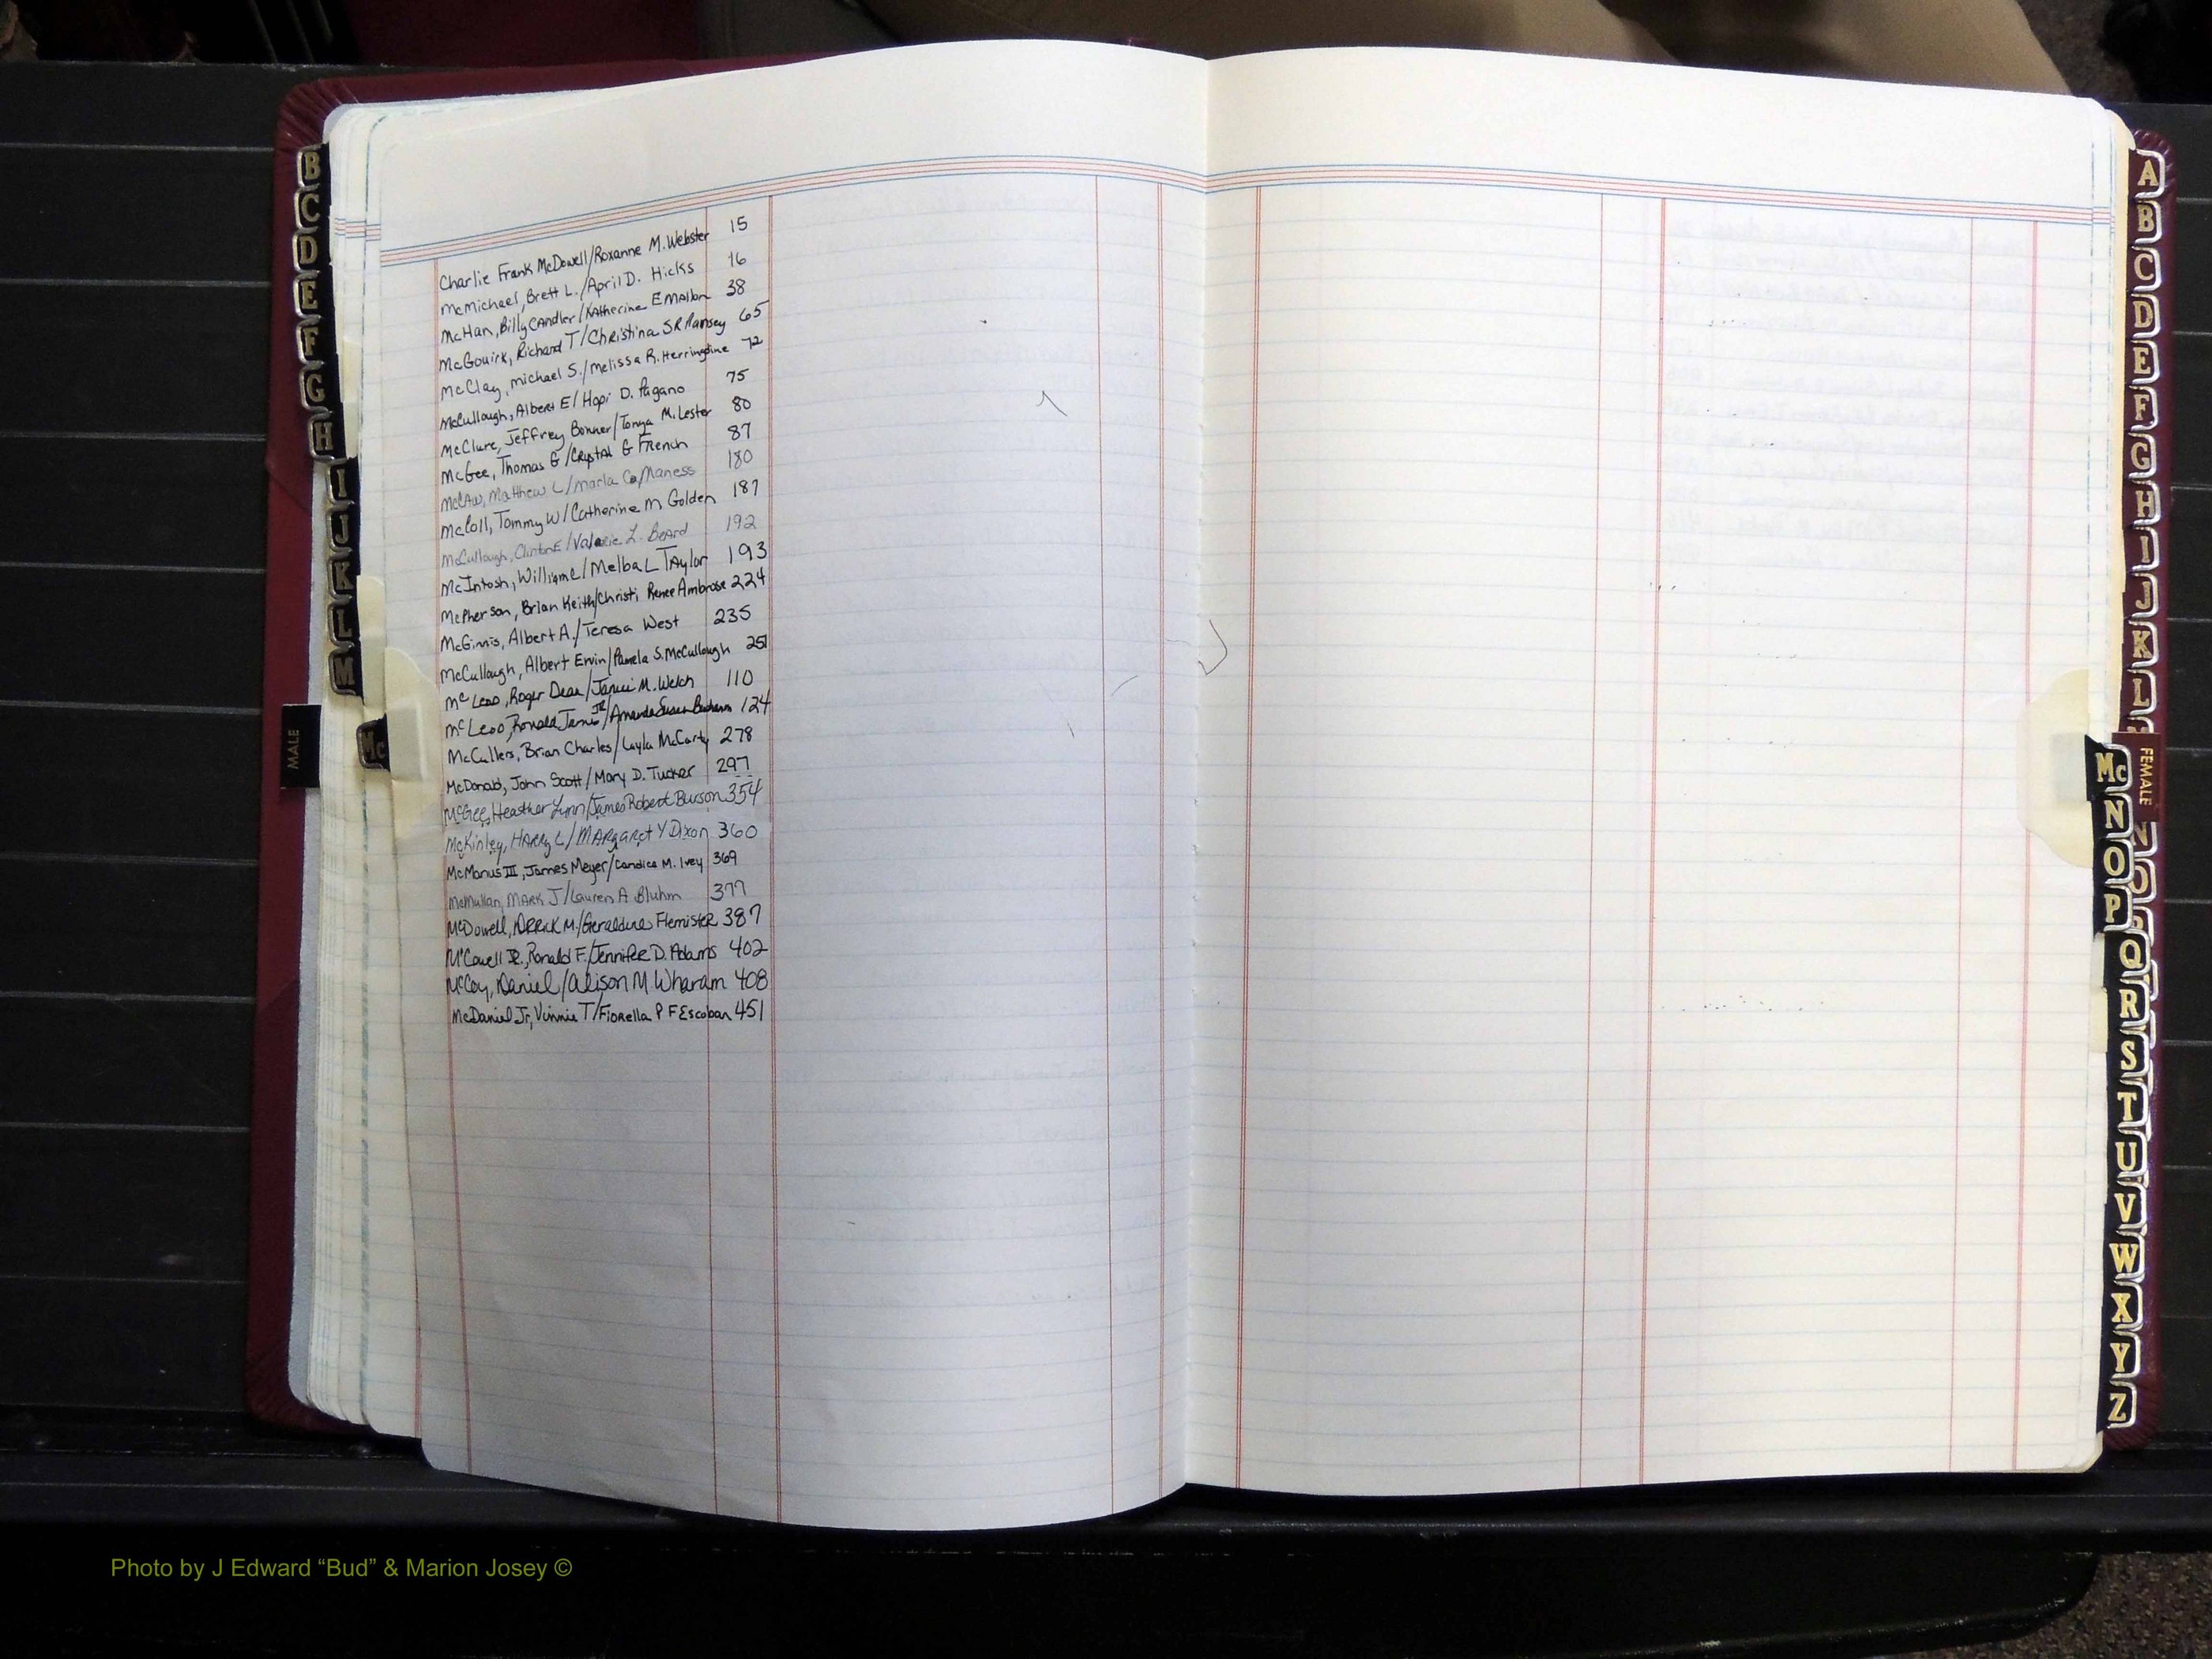 Charlie Frank McDowell/Roxanne M. Webster 15
McMichael, Brett L./April D. Hicks 16
McHan, Billy Candler/Katherine E Malbn 38
McGouirk, Richard T/Christina S R Ramsey 65
McClay, Michael S./Melissa R. Herringdine 72
McCullough, Albert E/Hopi D. Pagano 75
McClure, Jeffrey Bonner/Tonya M. Lester 80
McGee, Thomas G/Crystal G French 87
Matthew L/Marla Maness 180
McColl, Tommy W/Catherine M Golden 187
McCullough, Clinton E/Valarie L. Beard 192
McIntosh, William L/Melba L Taylor 193
McPherson, Brian Keith/Christi Renee Ambrose 224
McGinnis, Albert A./Teresa West 235
McCullough, Albert Ervin/Pamela S. McCullough 251
McLeod, Roger Dean/ M. Welch 110
McLeod, Ronald James JR/Amanda Susan 124
McCullers, Brian Charles/Layla McCarty 278
McDonald, John Scott/Mary D. Tucker 297
McGee, Heather Lynn/James Robert Burson 354
McKinley, Harry L/Margaret Y Dixon 360
McManus III, James Meyer/Candice M. Ivey 369
McMullan, Mark J/Lauren A Bluhm 377
McDowell, Derrick M./Geraldine Flemister 387
McCowell Jr., Ronald F./Jennifer D. Adams 402
McCoy, Daniel/Alison M Wharam 408
McDaniel Jr, Vinnie T/Fiorella P F Escobar 451
B
C
D
E
F
G
H
I
J
K
L
M
MALE
Mc
A
B
C
D
E
F
G
H
I
J
K
L
FEMALE
Mc
N
N
O
O
P
Q
R
S
T
U
V
W
X
Y
Z
Photo by J Edward “Bud” & Marion Josey ©